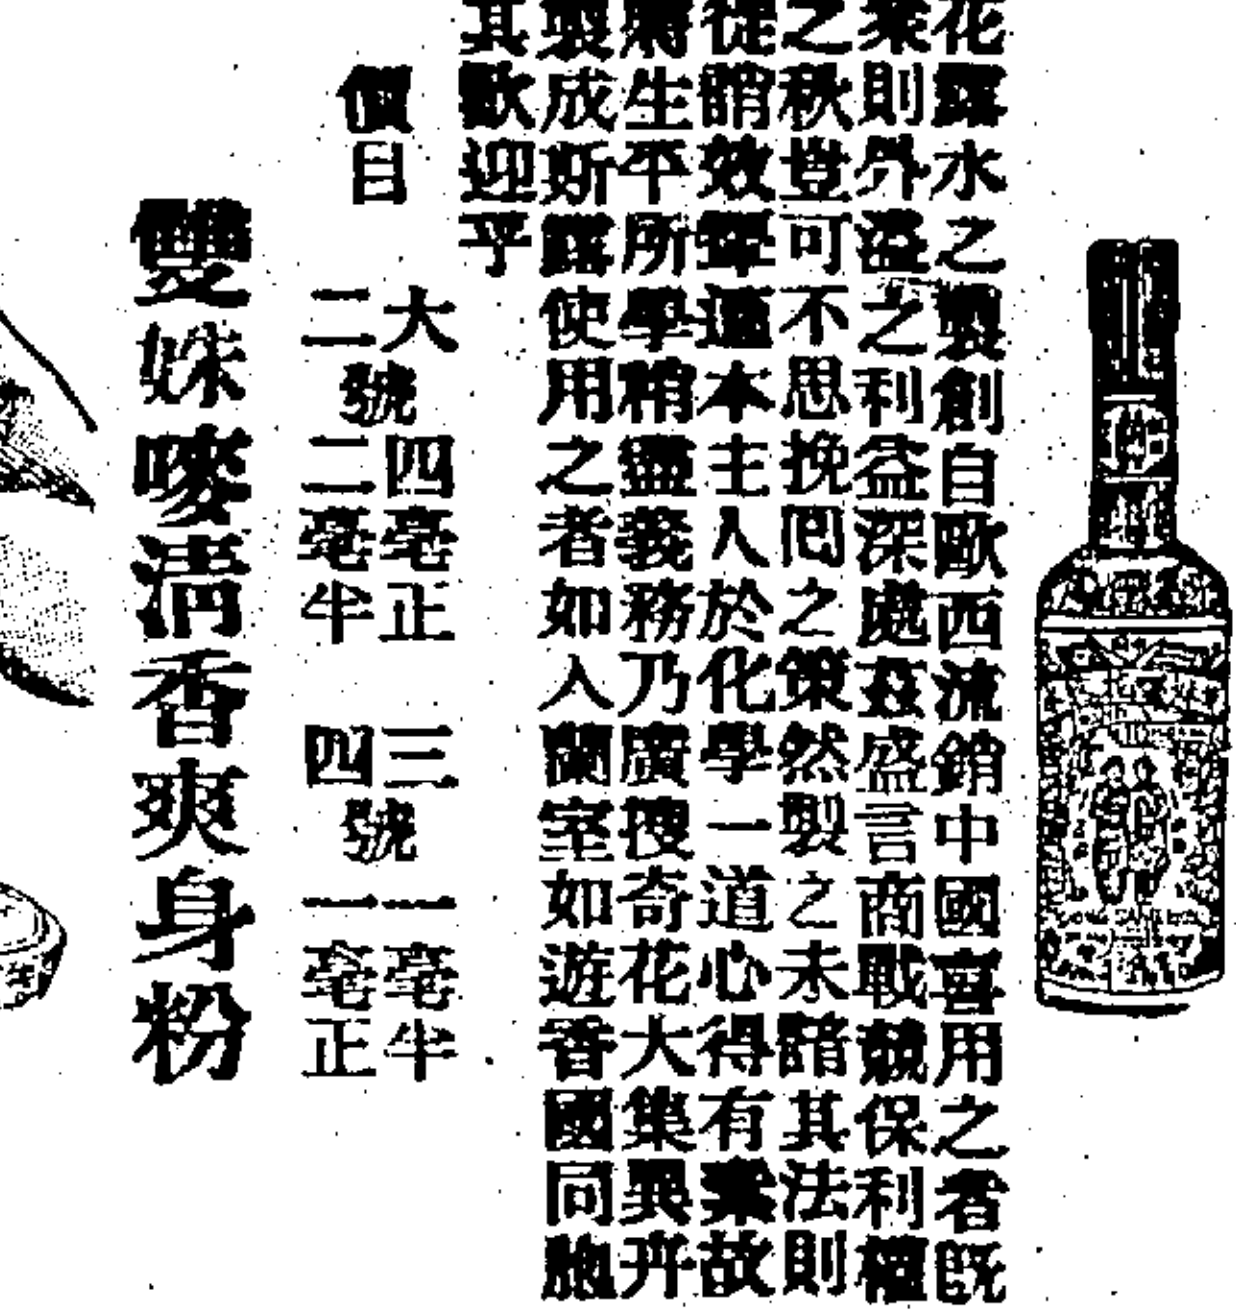 花露水之製創自歐西流銷中國喜用之者既
業則外溢之利益深處茲盛言商戰競保利權
之秋豈可不思挽回之策然製之未諳其法則
徒誚效顰適本主人於化學一道心得有素故
將生平所學稍盡義務乃廣搜奇花大集異卉
製成斯露使用之者如入蘭室如遊香國同胞
其歡迎乎
價目
大號四毫正 三號一毫半
二號二毫半 四號一毫正
雙妹嘜清香爽身粉